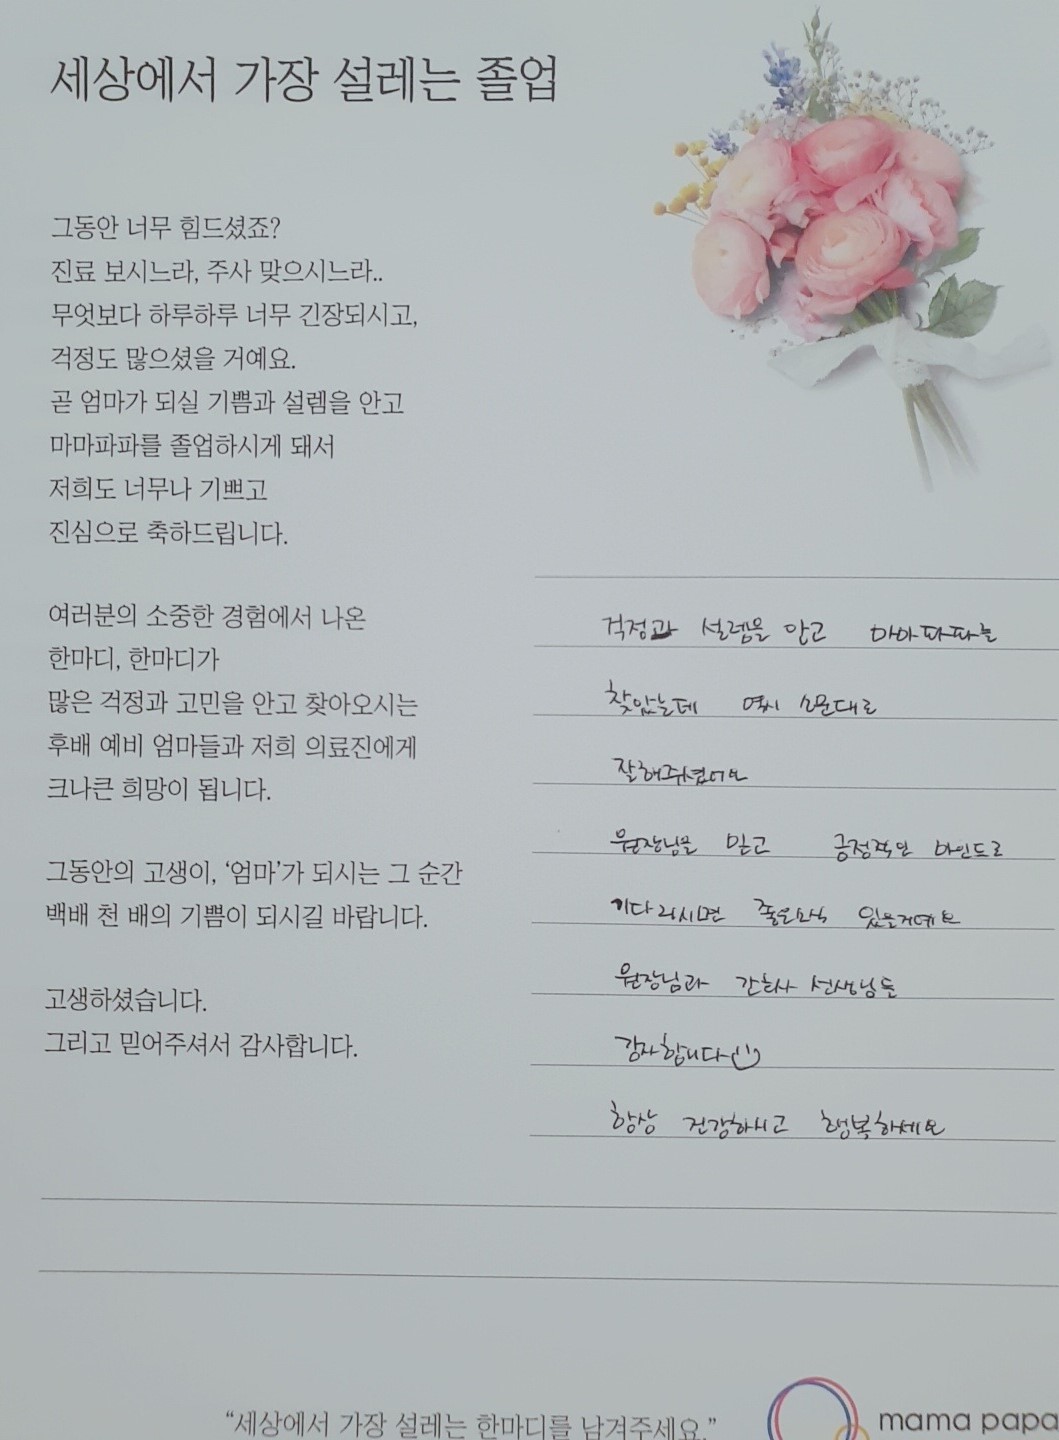 세상에서 가장 설레는 졸업
그동안 너무 힘드셨죠?
진료 보시느라, 주사 맞으시느라..
무엇보다 하루하루 너무 긴장되시고,
걱정도 많으셨을 거예요.
곧 엄마가 되실 기쁨과 설렘을 안고
마마파파를 졸업하시게 돼서
저희도 너무나 기쁘고
진심으로 축하드립니다.
여러분의 소중한 경험에서 나온
한마디, 한마디가
많은 걱정과 고민을 안고 찾아오시는
후배 예비 엄마들과 저희 의료진에게
크나큰 희망이 됩니다.
그동안의 고생이, ‘엄마’가 되시는 그 순간
백배 천 배의 기쁨이 되시길 바랍니다.
고생하셨습니다.
그리고 믿어주셔서 감사합니다.
걱정과 설렘을 안고 마마파파를
찾았는데 역시 소문대로
잘해주셨어요
원장님을 믿고 긍정적인 마인드로
기다리시면 좋은소식 있을거예요
원장님과 간호사 선생님들
감사합니다
항상 건강하시고 행복하세요
“세상에서 가장 설레는 한마디를 남겨주세요.”
mama papa